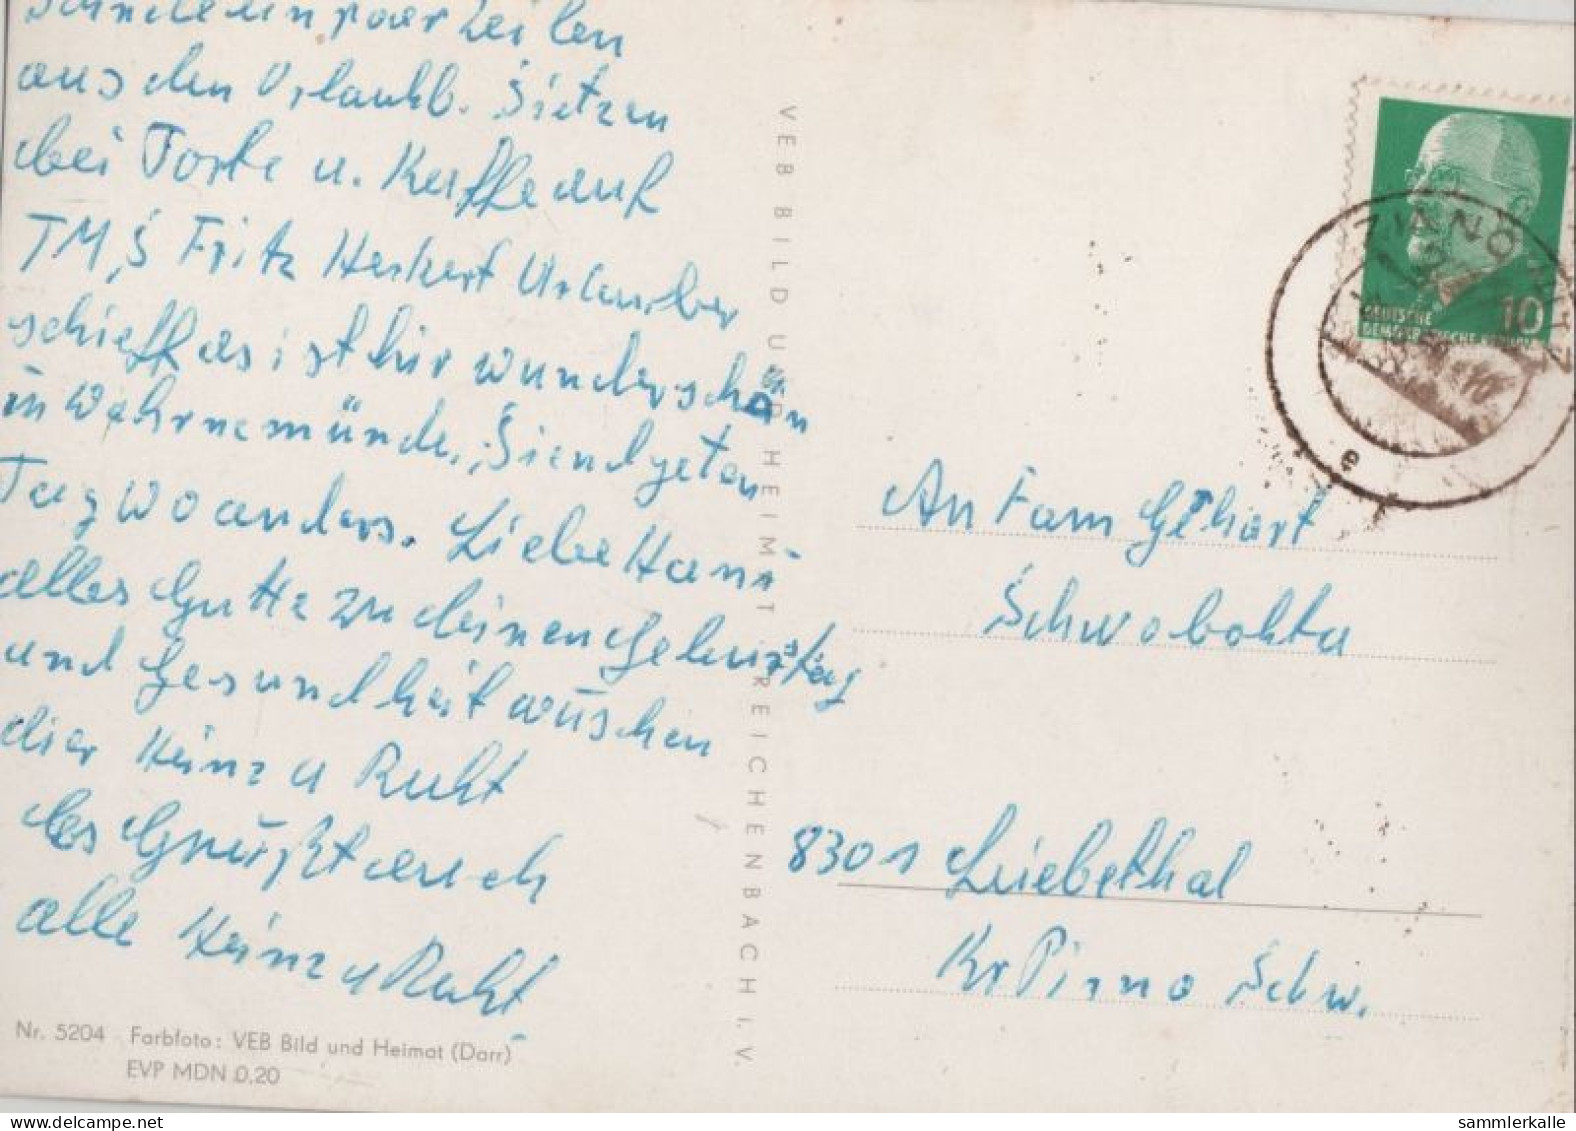 ein paar Zeilen
aus den Orlaubb. Sietzen
bei Torte u. Kaffe auf
TMS Fritz Herkert Urlauber
schieff as ist hir wunderschön
in Wahrnemünde. Siend jeten
Tag wo anders. Liebe Hans
alles Gutte zu deinen Geburstag
und Gesundheit wüschen
dier Heinz u Ruht
Es Grüßt aeuch
alle Heinz u Ruht
Nr. 5204 Farbfoto: VEB Bild und Heimat (Darr)
EVP MDN 0,20
VEB BILD UND HEIMAT REICHENBACH I. V.
10
DEUTSCHE
DEMOKRATISCHE REPUBLIK
ZINNOWITZ
e
An Fam Gehart
Schwobohta
8301 Liebethal
Kr Pirna Schw.
sammlerkalle